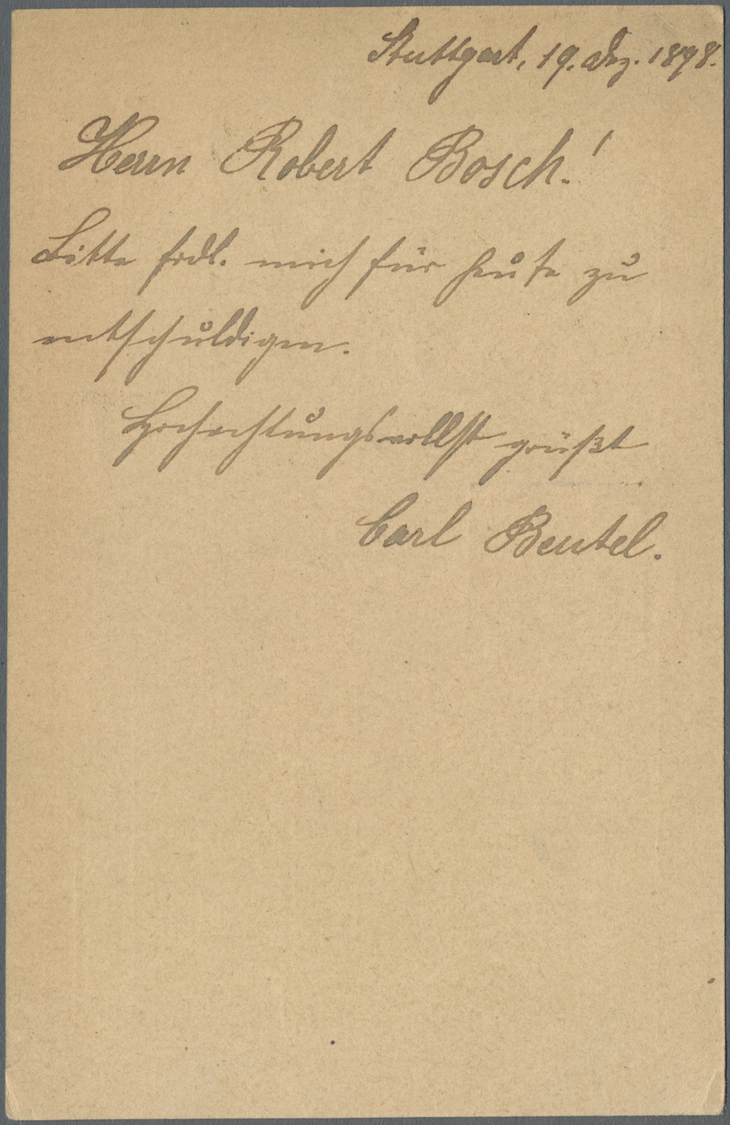 Stuttgart, 19. Dez. 1898.
Herrn Robert Bosch!
Bitte frdl. mich für heute zu
entschuldigen.
Hochachtungsvollst grüßt
Carl Beutel.